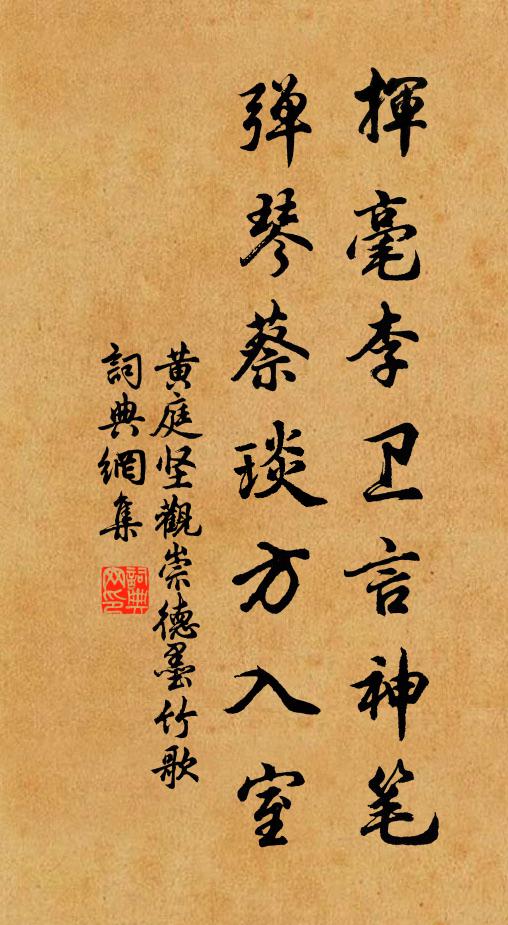 揮毫李卫言神笔
弹琴蔡琰方入室
黄庭坚觀崇德墨竹歌
詞典網集
詞典网印